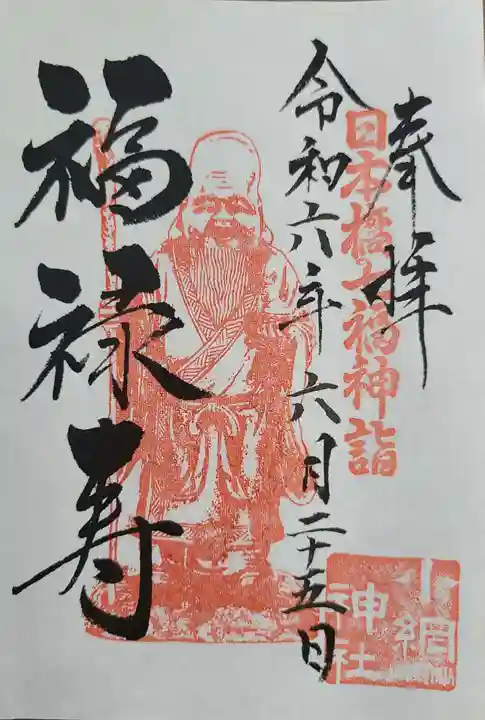 奉拝
日本橋七福神詣
令和六年六月二十五日
福禄寿
小網
神社